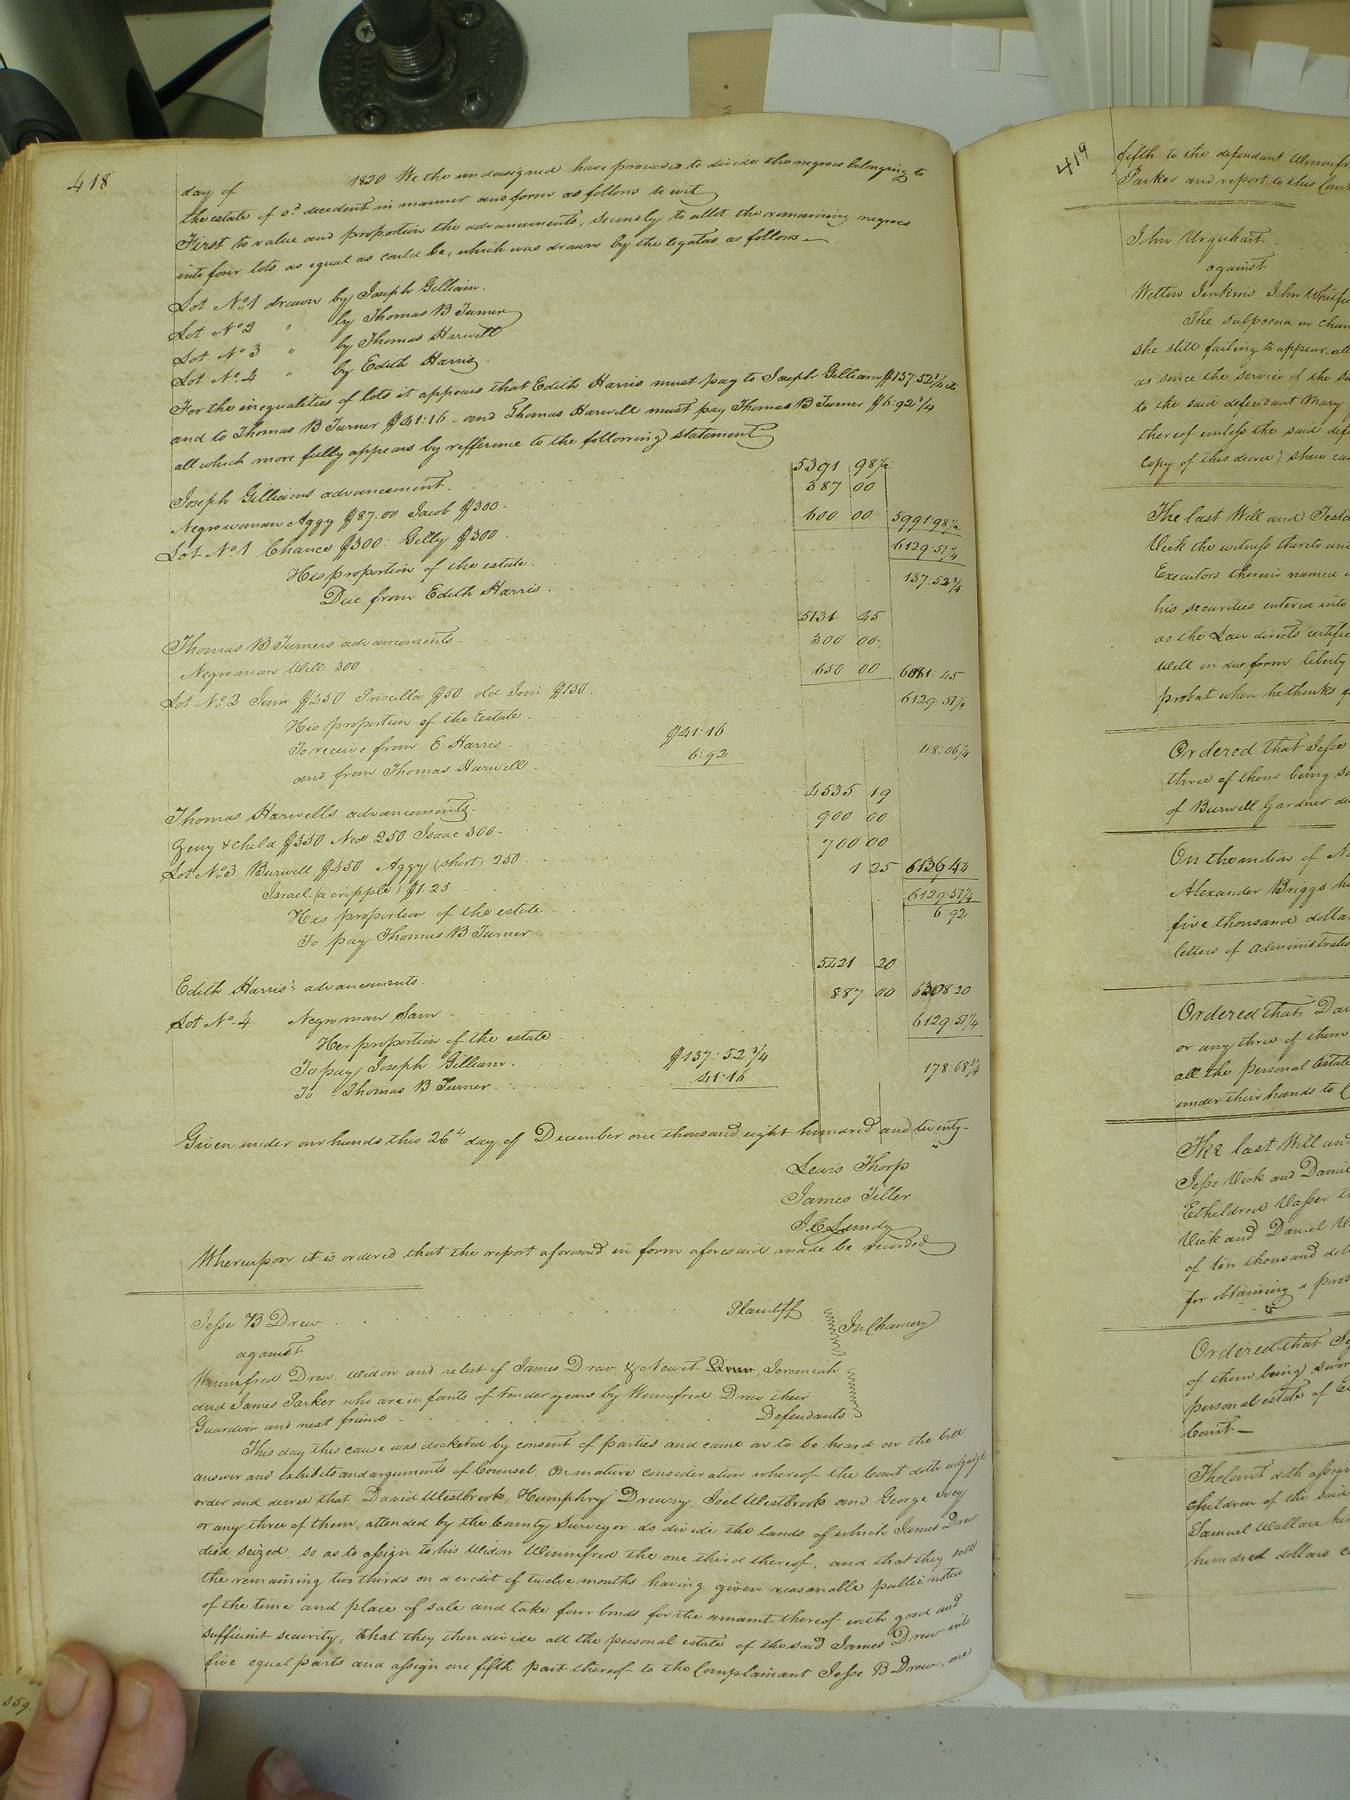 418
day of 1820 We the undersigned have proceeded to divide the negroes belonging to
the estate of sd decedent in manner and form as follows to wit
First to value and proportion the advancements, Seconly to allot the remaining negroes
into four lots as equal as could be, which was drawn by the legatees as follows
Lot No 1 drawn by Joseph Gilliam.
Lot No 2 " by Thomas B Turner
Lot No 3 " by Thomas Harwell
Lot No 4 " by Edith Harris
For the inequalities of lots it appears that Edith Harris must pay to Joseph Gilliam $137.52 3/4 cts
and to Thomas B Turner $41:16 and Thomas Harwell must pay Thomas B Turner $6:92 3/4
all which more fully appears by refference to the following statement
Joseph Gilliams advancement. 5391 98 1/2
Negro woman Aggy $87.00 Jacob $300. 387 00
Lot No 1 Chance $300: Gilly $300 600 00 5991.98 1/2
His proportion of the estate. 6129.51 1/4
Due from Edith Harris. 137.52 3/4
Thomas B Turners advancements. 5131 45
Negro man Will 300 300 00
Lot No 2 $450 Priscilla $50 old $150. 650 00 6081 45
His proportion of the Estate 6129.51 1/4
To receive from E Harris $41:16
and from Thomas Harwell. 6:92 48:06 1/4
Thomas Harwells advancements. 4535 19
& child $350 Ned 250 Isaac 300 900 00
Lot No 3 Burwell $450 Aggy (short) 250 700 00
Israel (a cripple) $1.25 1 25 6136 44
His proportion of the estate 6129.51 1/4
To pay Thomas B Turner 6:92
Edith Harris's advancements. 5421 20
Lot No 4 Negro man Sam 887 00 6308 20
Her proportion of the estate 6129.51 1/4
To pay Joseph Gilliam. $137:52 3/4
To Thomas B Turner. 41:16 178:68 3/4
Given under our hands this 26th day of December one thousand eight hundred and twenty
Lewis Thorp
James Tiller
J. C. Lundy
Whereupon it is ordered that the report aforesaid in form aforesaid made be recorded
Jesse B Drew Plaintiff
against In Chancery
Winnifred Drew widow and relict of James Drew & Newit Drew, Jeremiah
and James Parker who are infants of tender years by Winnifred Drew their
Guardian and next friend Defendants
This day this cause was docketed by consent of parties and came on to be heard on the bill
answer and exhibits and arguments of Counsel. On mature consideration whereof the Court doth adjudge
order and decree that David Westbrook, Humphry Drewry, Joel Westbrook and George Ivey
or any three of them, attended by the County Surveyor do divide the lands of which James Drew
died seized, so as to assign to his widow Winnifred the one third thereof, and that they sell
the remaining two thirds on a credit of twelve months having given reasonable public notice
of the time and place of sale and take four bonds for the amount thereof with good and
sufficient security, that they then divide all the personal estate of the said James Drew into
five equal parts and assign one fifth part thereof to the Complainant Jesse B Drew, one
419
fifth to the defendant
Parker and report to this
John Urquhart
against
Jenkins, John
The subpoena in
she still failing to appear
as since the service of the
to the said defendant Mary
thereof unless the said
copy of this decree; shew
The last Will and
Vick the witness thereto
Executors therein named
his securities entered into
as the Law directs
Will in due form liberty
probat when he thinks
Ordered that Jesse
three of them being
of Burwell Gardner
On the motion of
Alexander Briggs
five thousand
letters of
Ordered that
or any three of them
all the personal Estate
under their hands to
The last Will and
Jesse Vick and
Etheldred Vasser
Vick and Daniel
of ten thousand
for obtaining a
Ordered that
of them being
personal estate of
Court
The Court doth
children of the said
Samuel Wallace
hundred dollars
359